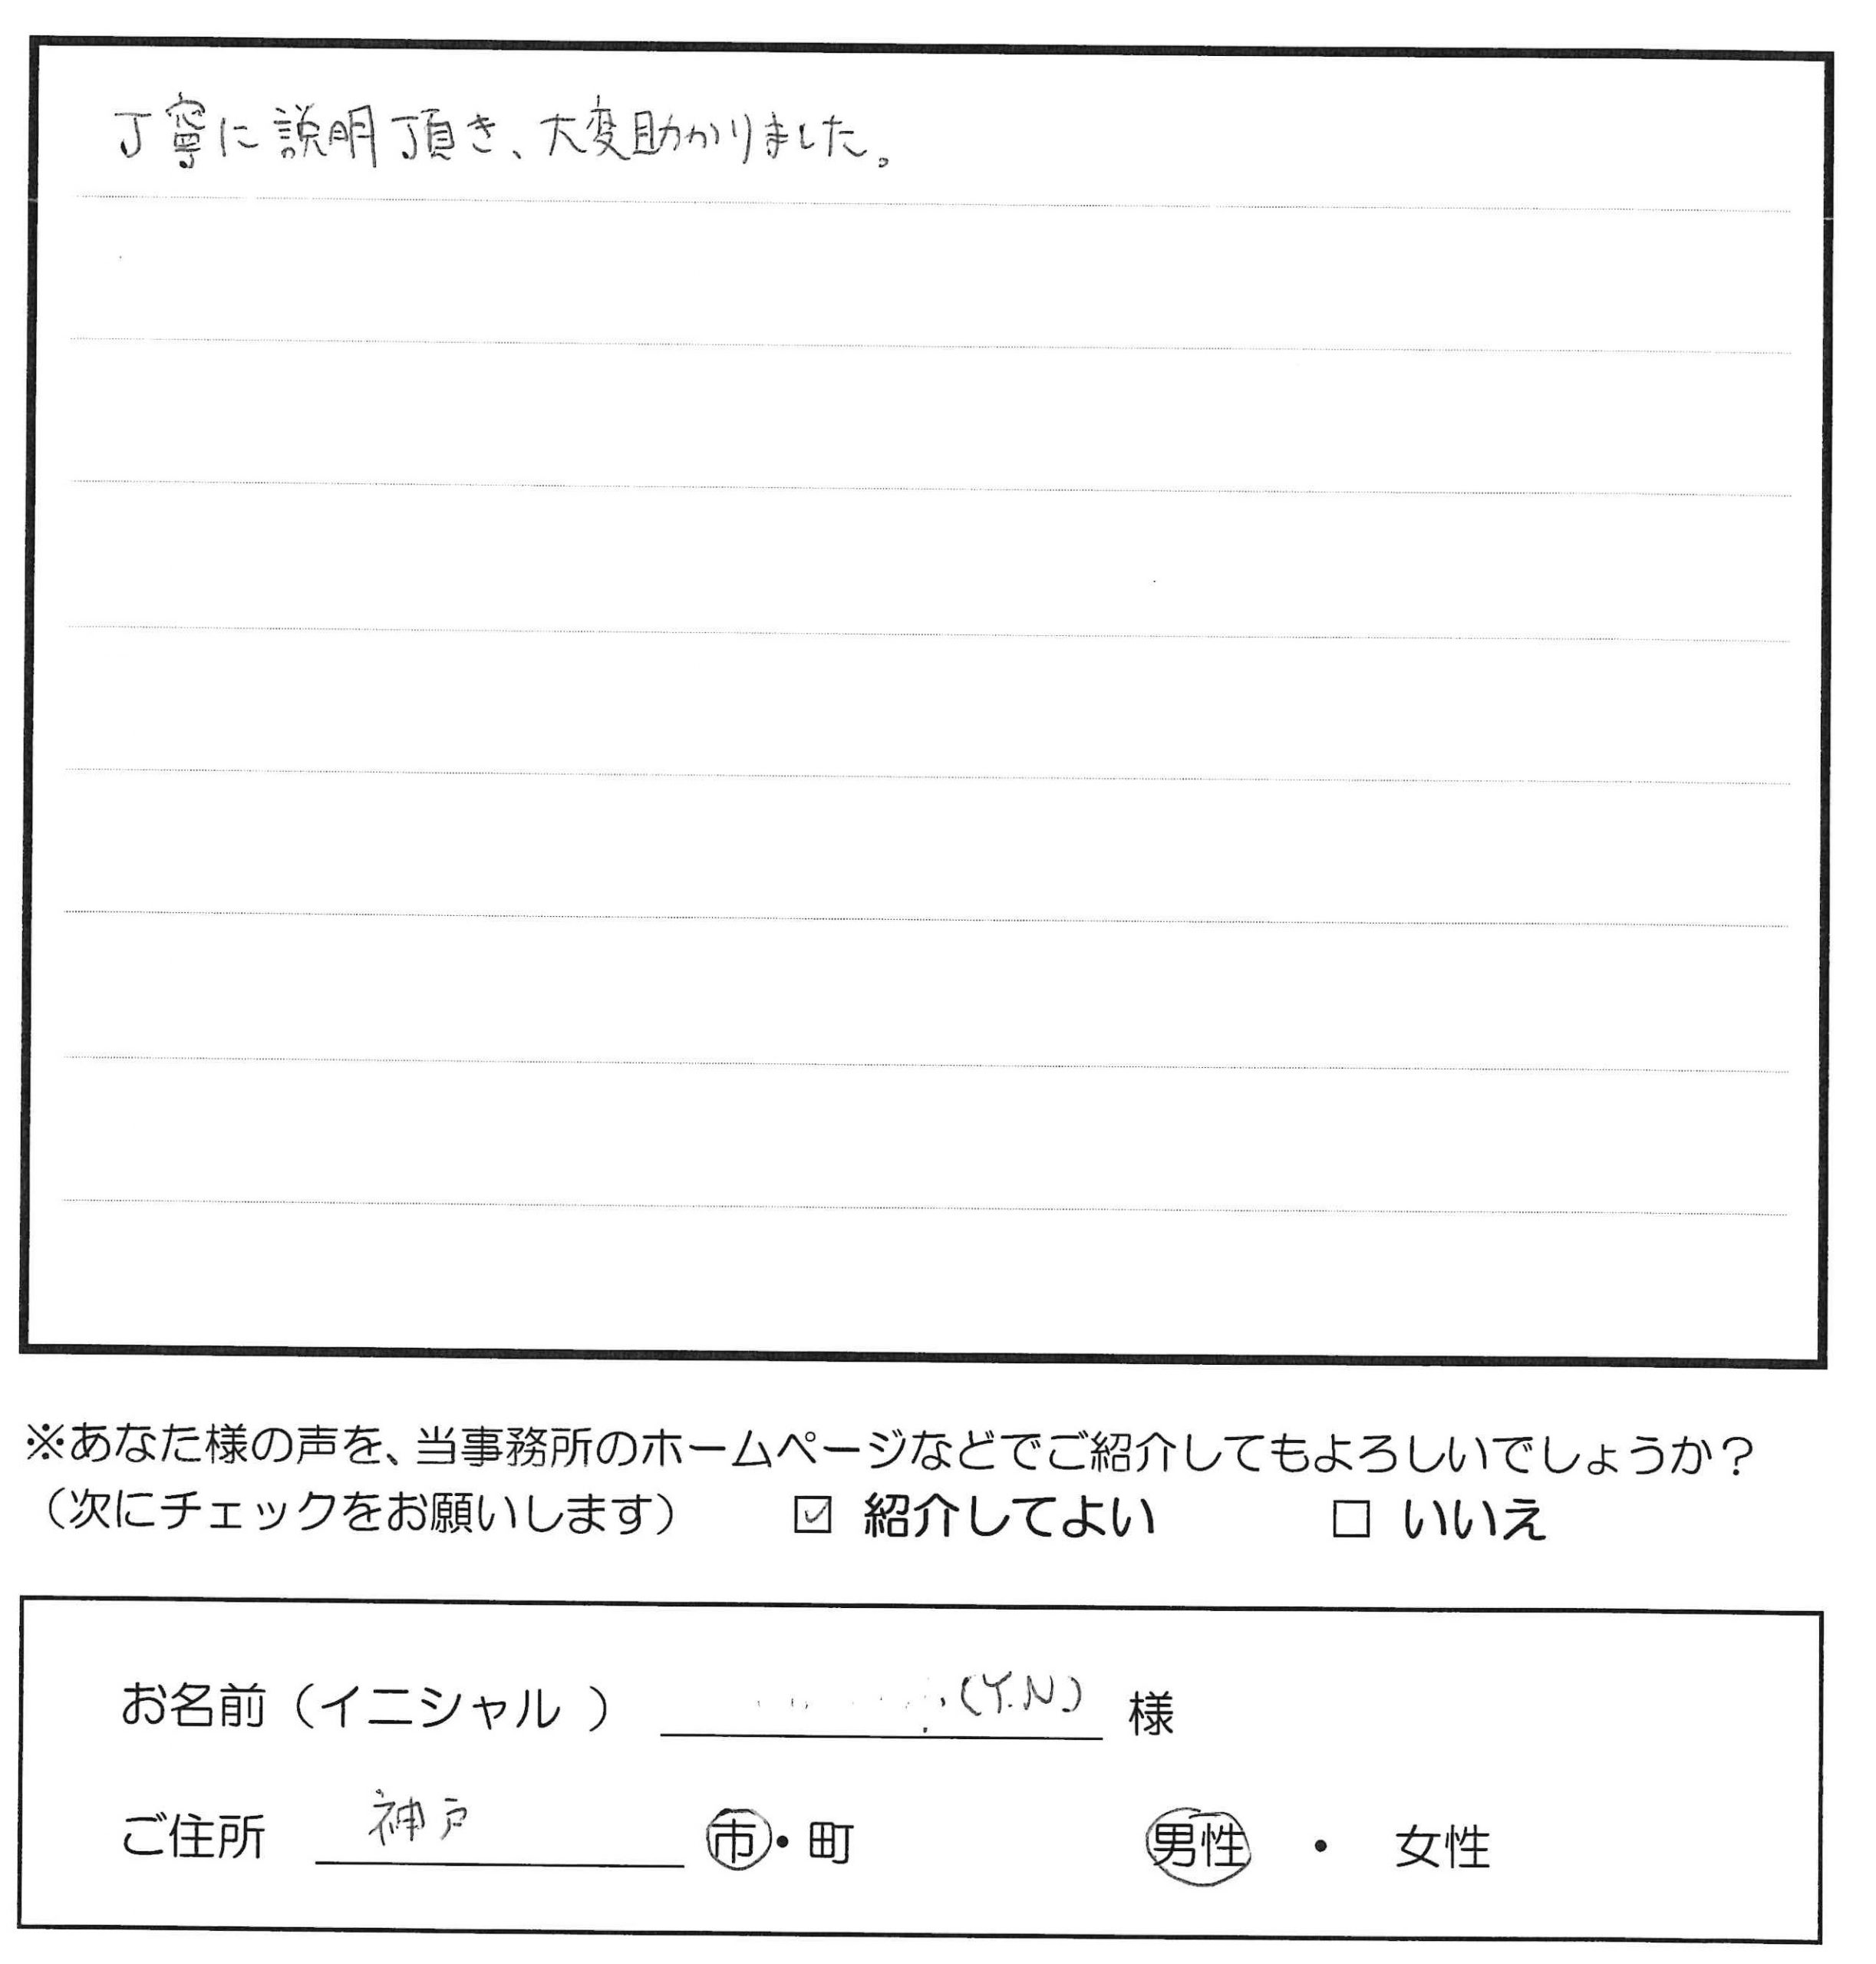 丁寧に説明頂き、大変助かりました。
※あなた様の声を、当事務所のホームページなどでご紹介してもよろしいでしょうか？
（次にチェックをお願いします） ☑ 紹介してよい □ いいえ
お名前（イニシャル ） (Y.N) 様
ご住所 神戸 市・町 男性 ・ 女性